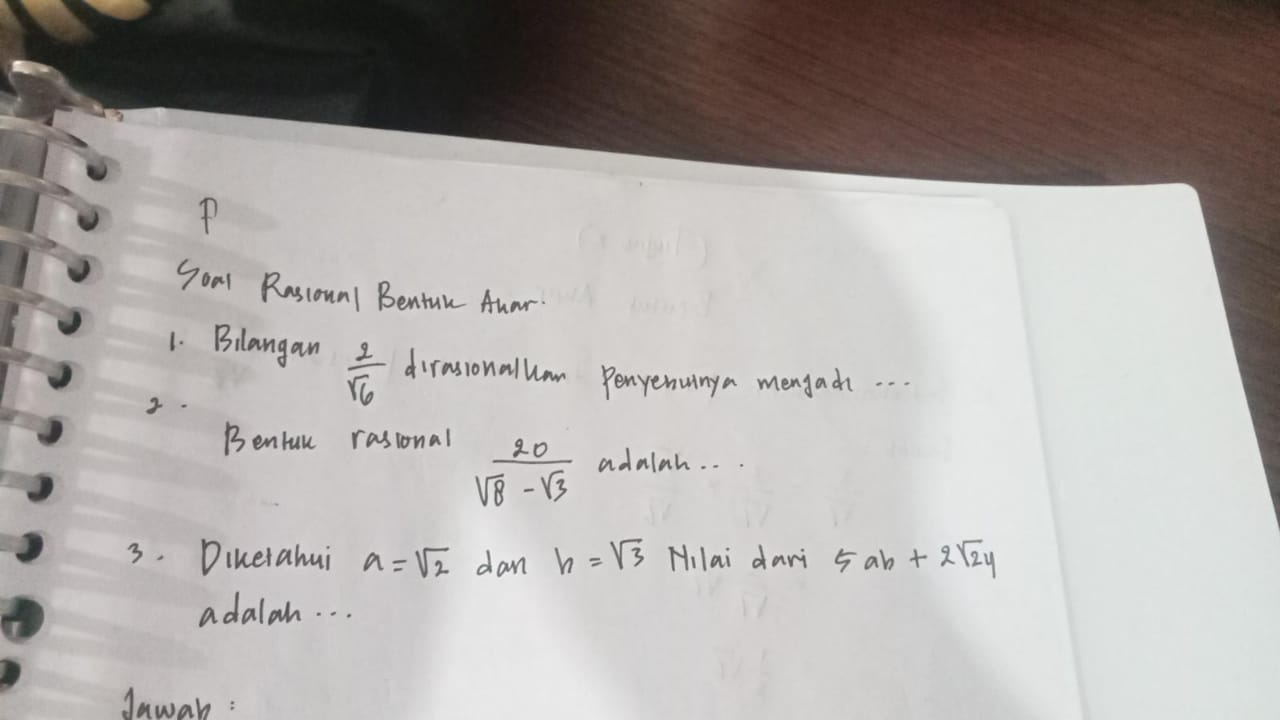 P
Soal Rasional Bentuk Akar.
1. Bilangan 2/√6 dirasionalkan Penyebutnya menjadi ...
2.
Bentuk rasional 20/(√8 - √3) adalah ...
3. Diketahui a = √2 dan b = √3 Nilai dari 5 ab + 2√24
adalah ...
Jawab :